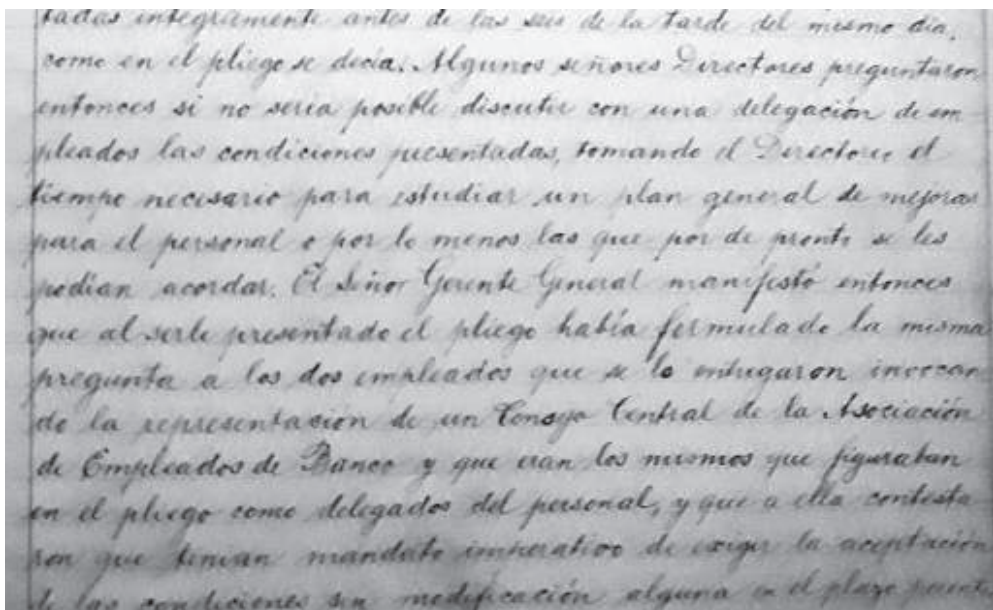 tadas integramente antes de las seis de la tarde del mismo dia,
como en el pliego se decía. Algunos señores Directores preguntaron
entonces si no seria posible discutir con una delegación de em
pleados las condiciones presentadas, tomando el Directorio el
tiempo necesario para estudiar un plan general de mejoras
para el personal o por lo menos las que por de pronto se les
podían acordar. El Señor Gerente General manifestó entonces
que al serle presentado el pliego había formulado la misma
pregunta a los dos empleados que se lo entregaron invocan
do la representacion de un Consejo Central de la Asociación
de Empleados de Banco y que eran los mismos que figuraban
en el pliego como delegados del personal, y que a ella contesta
ron que tenian mandato imperativo de exigir la aceptación
de las condiciones sin modificación alguna en el plazo